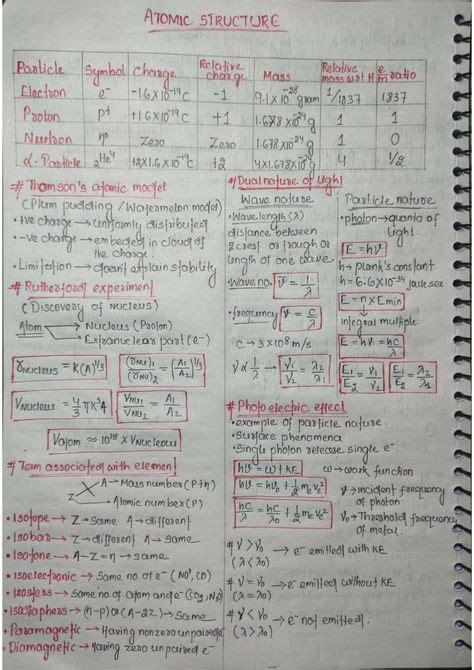 ATOMIC STRUCTURE
Particle Symbol Charge Relative charge Mass Relative mass w.r.t H e/m ratio
Electron e⁻ -1.6×10⁻¹⁹C -1 9.1×10⁻²⁸ gram 1/1837 1837
Proton p⁺ +1.6×10⁻¹⁹C +1 1.678×10⁻²⁴g 1 1
Neutron n⁰ Zero Zero 1.678×10⁻²⁴g 1 0
α-Particle ₂He⁴ +2×1.6×10⁻¹⁹C +2 4×1.678×10⁻²⁴g 4 1/2
# Thomson's atomic model
(Plum pudding / Watermelon model)
• +ve charge → uniformly distributed
• -ve charge → embeded in cloud of
the charge.
• Limitation → doesn't explain stability
# Rutherford experiment
(Discovery of Nucleus)
Atom → Nucleus (Proton)
→ Extranuclears part (e⁻)
r Nucleus = K(A)^1/3 (r Nu)₁/(r Nu)₂ = (A₁/A₂)^1/3
V Nucleus = 4/3 πK³A V Nu₁/V Nu₂ = A₁/A₂
V atom ≈ 10¹⁵ × V Nucleous
# Team associated with element
X A → Mass number (P+n)
Z → Atomic number (P)
• Isotope → Z → Same A → different
• Isobar → Z → different A → same
• Isotone → A-Z = n → same
• Isoelectronic → Same no. of e⁻ (NO⁺, CO)
• Isosters → Same no. of atom and e⁻ (CO₂, N₂O)
• Isodiaphers → (n-p) or (A-2Z) → Same
• Paramagnetic → Having nonzero unpaired e⁻
• Diamagnetic → Having zero unpaired e⁻
# Dual nature of light
Wave nature
• Wavelength (λ)
distance between
2 crest or trough or
length of one wave.
• Wave no. ν = 1/λ
• frequency ν = c/λ
c → 3×10⁸ m/s
ν ∝ 1/λ → ν₁/ν₂ = λ₂/λ₁
Particle nature
• photon → quanta of
light.
E = hν
h → plank's constant
h = 6.6×10⁻³⁴ joule sec
E = n × Emin
integral multiple
E = hν = hc/λ
E₁/E₂ = ν₁/ν₂ E₁/E₂ = λ₂/λ₁
# Photo electric effect
• example of particle nature.
• Surface phenomena
• Single photon release single e⁻
hν = ω + KE ω → work function
hν = hν₀ + 1/2 mₑvₑ² ν → incident frequency
of photon
hc/λ = hc/λ₀ + 1/2 mₑvₑ² ν₀ → Threshold frequency
of metal.
# ν > ν₀ → e⁻ emitted with KE
(λ < λ₀)
# ν = ν₀ → e⁻ emitted without KE
(λ = λ₀)
# ν < ν₀ → e⁻ not emitted.
(λ > λ₀)